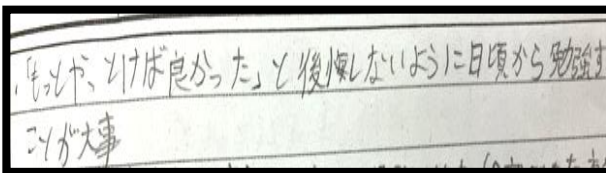 「もっとやっとけば良かった」と後悔しないように日頃から勉強す
ことが大事